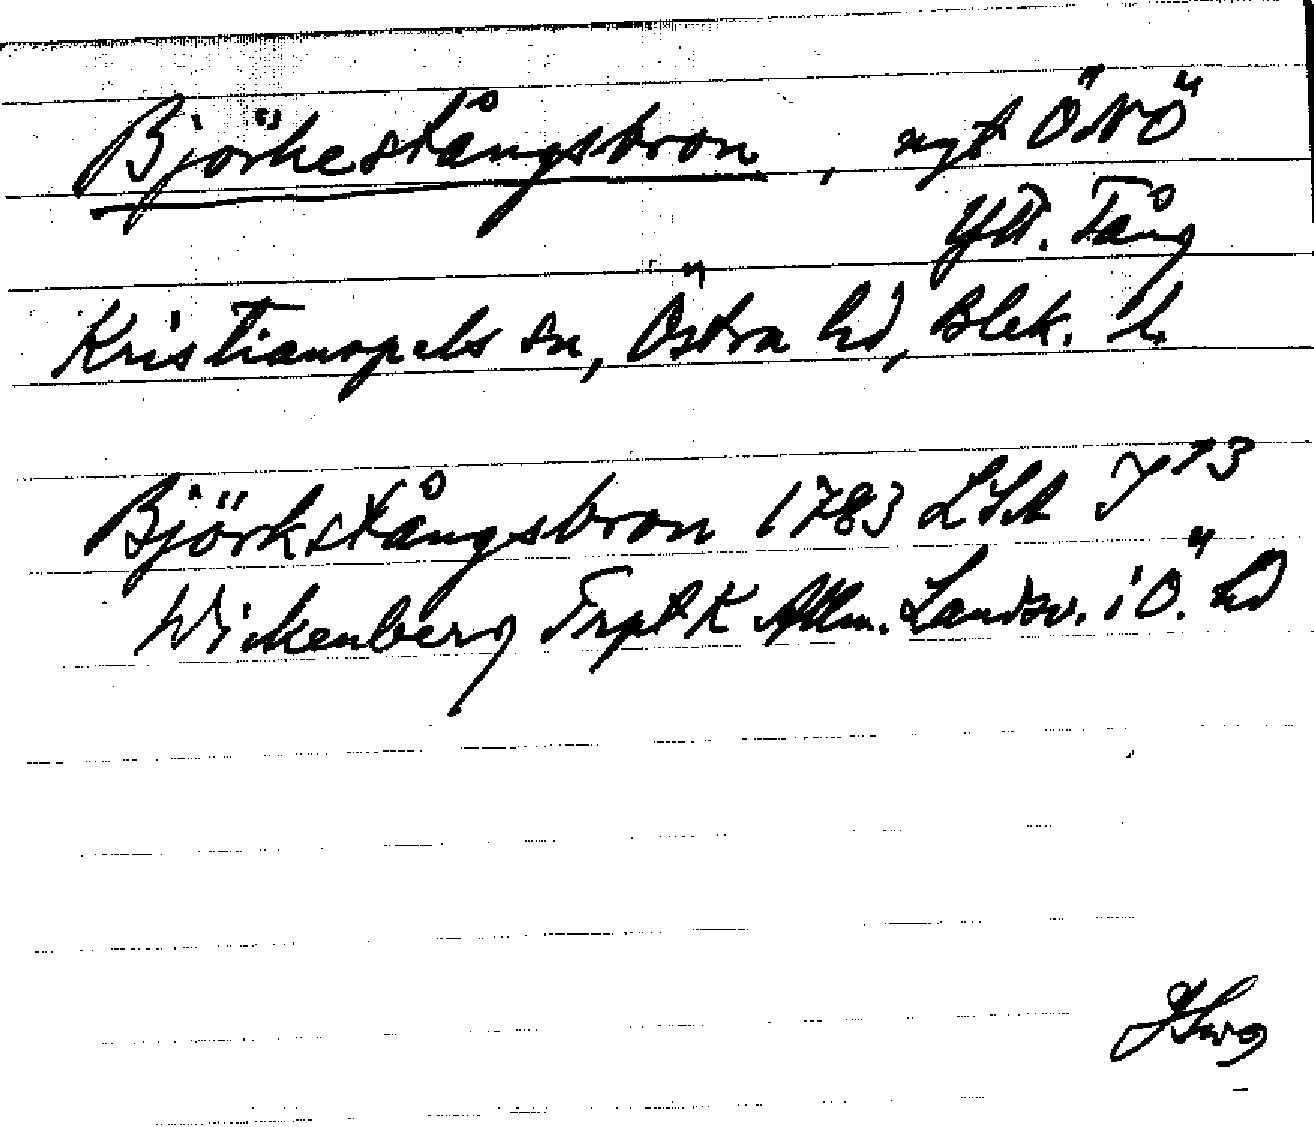 Björkestångsbron, ngt ÖNÖ
Ytt. Tång
Kristianopels sn, Östra hd, Blek. l.
Björkstångsbron 1783 LSA J 13
Wickenberg Trpt K Allm. Landsv. i Ö. hd